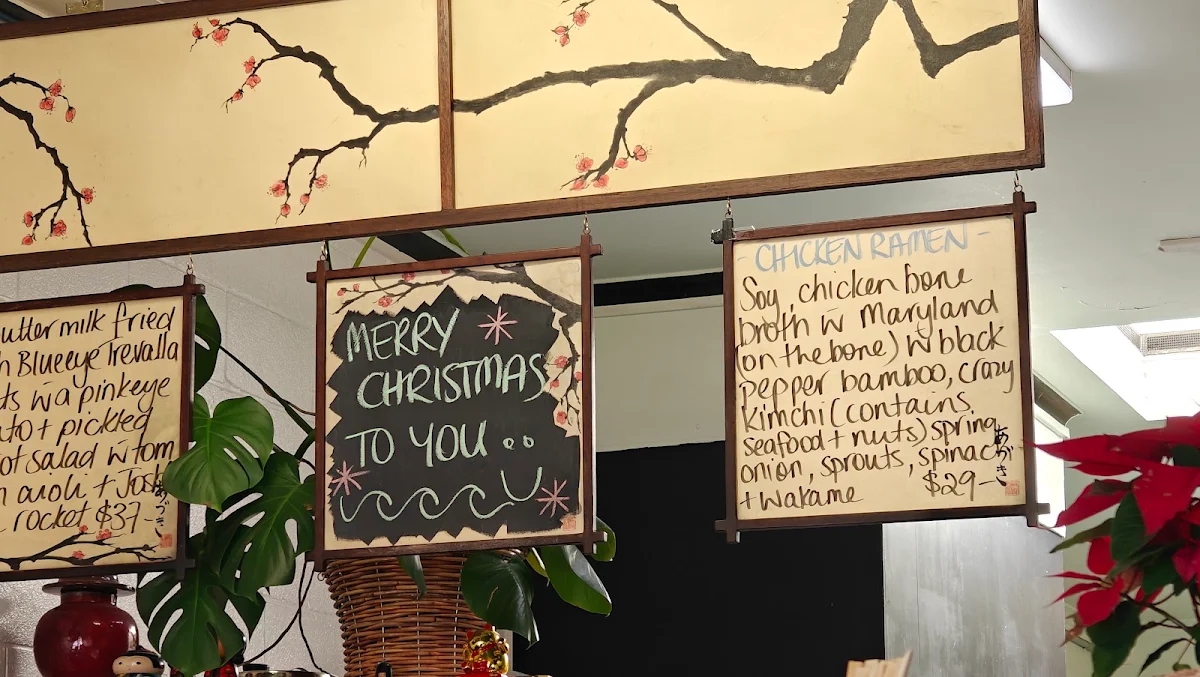 utter milk fried
h Blueeye Trevalla
ts w a pinkeye
ato + pickled
ot salad w tom
aioli + Josh
rocket $37-
MERRY
CHRISTMAS
TO YOU..
- CHICKEN RAMEN -
Soy, chicken bone
broth w Maryland
(on the bone) w black
pepper bamboo, crazy
Kimchi (contains
seafood + nuts) spring
onion, sprouts, spinach
+ wakame $29-
あづき